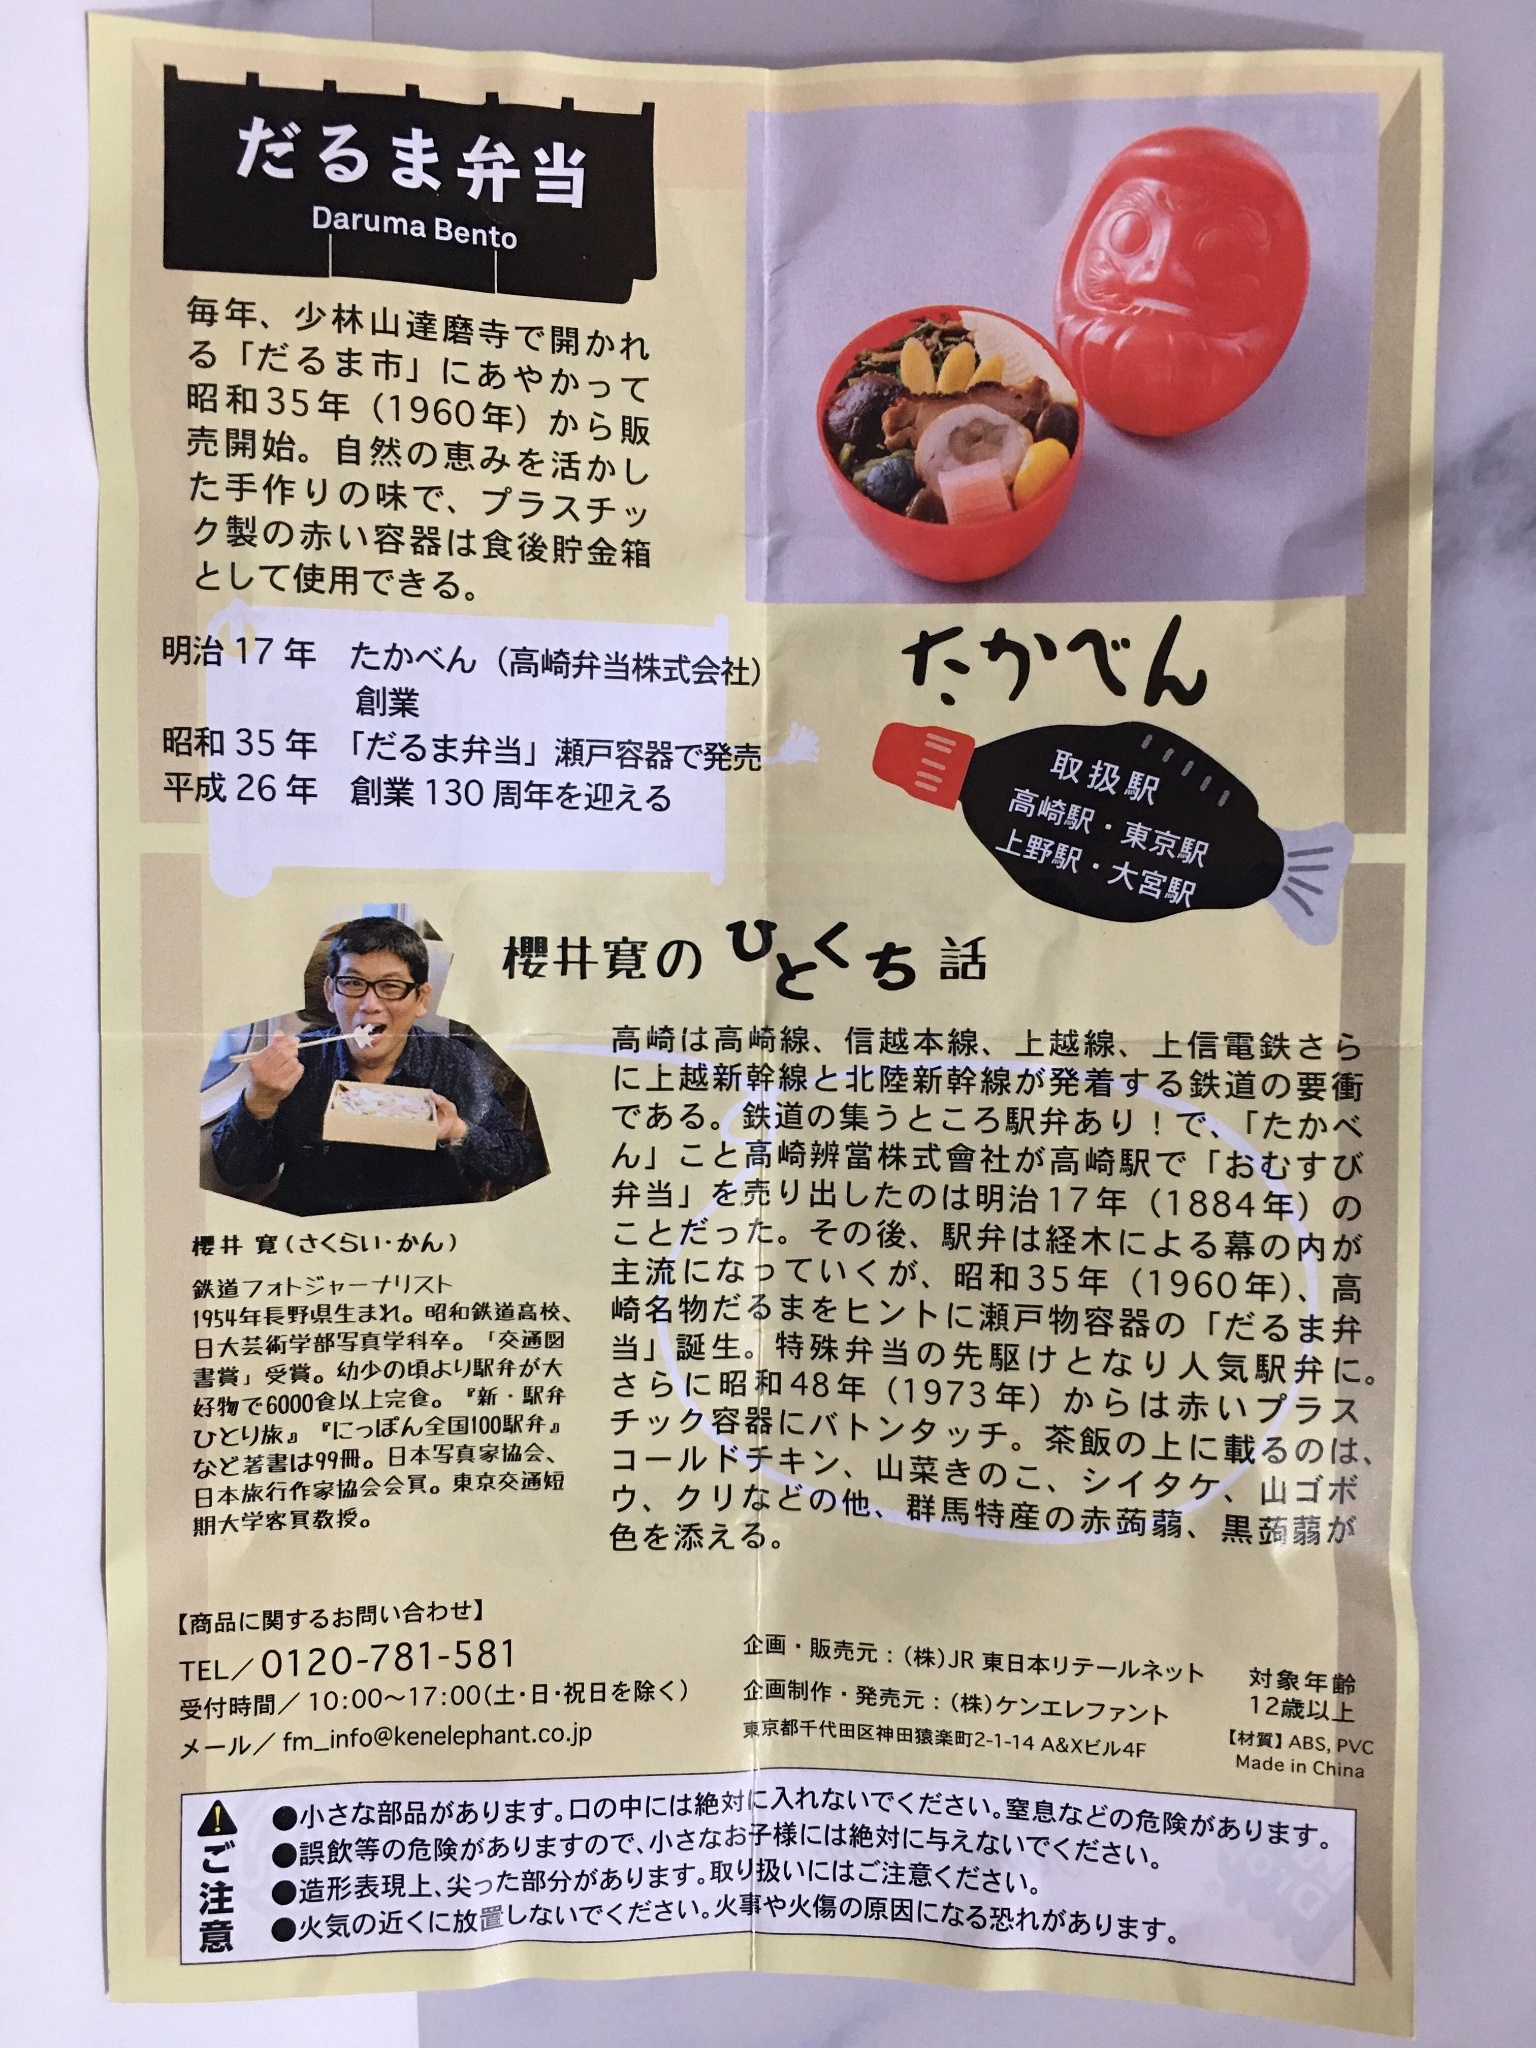 だるま弁当
Daruma Bento
毎年、少林山達磨寺で開かれ
る「だるま市」にあやかって
昭和35年（1960年）から販
売開始。自然の恵みを活かし
た手作りの味で、プラスチッ
ク製の赤い容器は食後貯金箱
として使用できる。
明治 17 年　たかべん（高崎弁当株式会社）
創業
昭和 35 年　「だるま弁当」瀬戸容器で発売
平成 26 年　創業 130 周年を迎える
たかべん
取扱駅
高崎駅・東京駅
上野駅・大宮駅
櫻井寛のひとくち話
高崎は高崎線、信越本線、上越線、上信電鉄さら
に上越新幹線と北陸新幹線が発着する鉄道の要衝
である。鉄道の集うところ駅弁あり！で、「たかべ
ん」こと高崎辨當株式會社が高崎駅で「おむすび
弁当」を売り出したのは明治17年（1884年）の
ことだった。その後、駅弁は経木による幕の内が
主流になっていくが、昭和35年（1960年）、高
崎名物だるまをヒントに瀬戸物容器の「だるま弁
当」誕生。特殊弁当の先駆けとなり人気駅弁に。
さらに昭和48年（1973年）からは赤いプラス
チック容器にバトンタッチ。茶飯の上に載るのは、
コールドチキン、山菜きのこ、シイタケ、山ゴボ
ウ、クリなどの他、群馬特産の赤蒟蒻、黒蒟蒻が
色を添える。
櫻井 寛（さくらい・かん）
鉄道フォトジャーナリスト
1954年長野県生まれ。昭和鉄道高校、
日大芸術学部写真学科卒。「交通図
書賞」受賞。幼少の頃より駅弁が大
好物で6000食以上完食。『新・駅弁
ひとり旅』『にっぽん全国100駅弁』
など著書は99冊。日本写真家協会、
日本旅行作家協会会員。東京交通短
期大学客員教授。
【商品に関するお問い合わせ】
TEL／0120-781-581
受付時間／10：00〜17：00（土・日・祝日を除く）
メール／fm_info@kenelephant.co.jp
企画・販売元：（株）JR 東日本リテールネット
企画制作・発売元：（株）ケンエレファント
東京都千代田区神田猿楽町2-1-14 A&Xビル4F
対象年齢
12歳以上
【材質】ABS, PVC
Made in China
ご注意
●小さな部品があります。口の中には絶対に入れないでください。窒息などの危険があります。
●誤飲等の危険がありますので、小さなお子様には絶対に与えないでください。
●造形表現上、尖った部分があります。取り扱いにはご注意ください。
●火気の近くに放置しないでください。火事や火傷の原因になる恐れがあります。